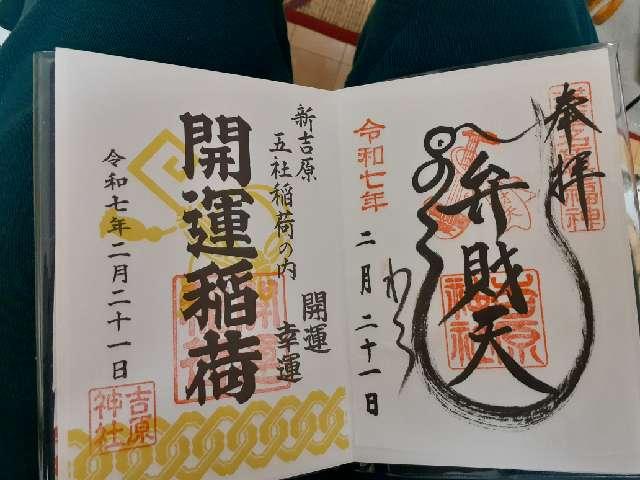 奉拝
弁財天
令和七年
二月二十一日
吉原
神社
新吉原
五社稲荷の内
開運
幸運
開運稲荷
令和七年二月二十一日
吉原
神社